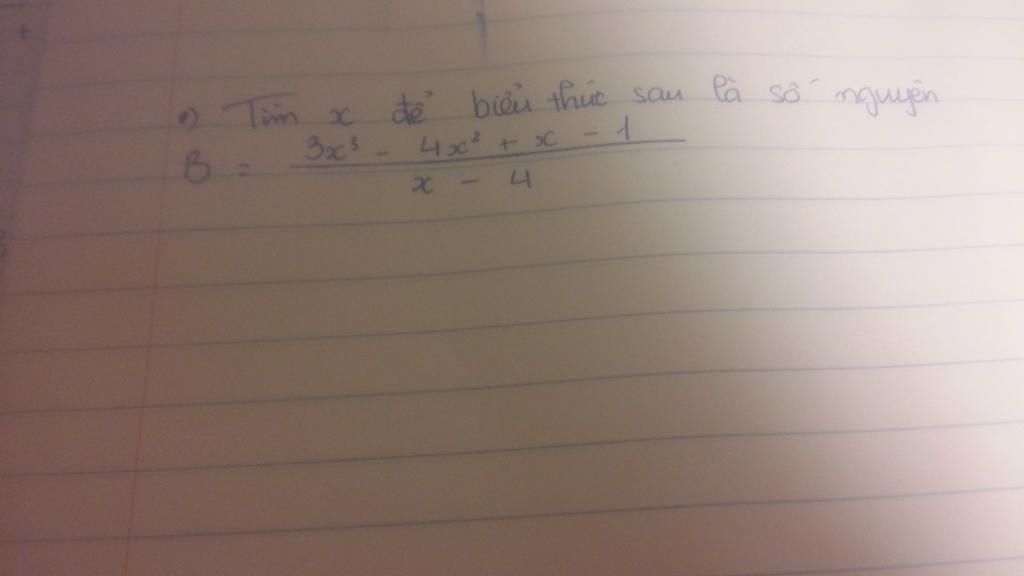 a) Tìm x để biểu thức sau là số nguyên
B = (3x³ - 4x² + x - 1) / (x - 4)